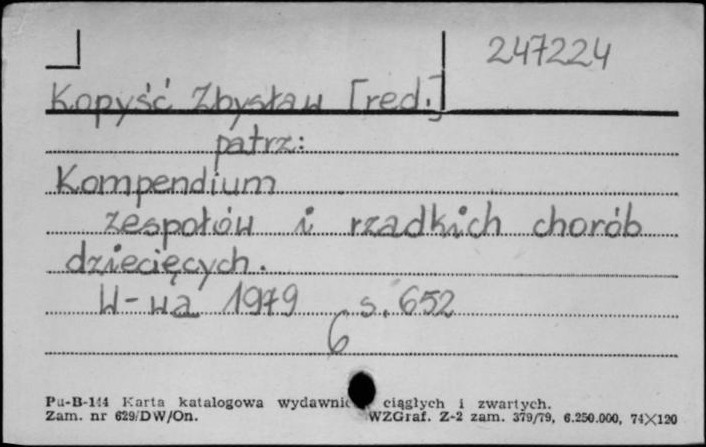 247224
Kopyść Zbysław [red.]
patrz:
Kompendium
zespołów i rzadkich chorób
dziecięcych.
W-wa 1979 s. 652
6
Pu-B-144 Karta katalogowa wydawnic ciągłych i zwartych.
Zam. nr 629/DW/On. WZGraf. Z-2 zam. 379/79, 6.250.000, 74×120